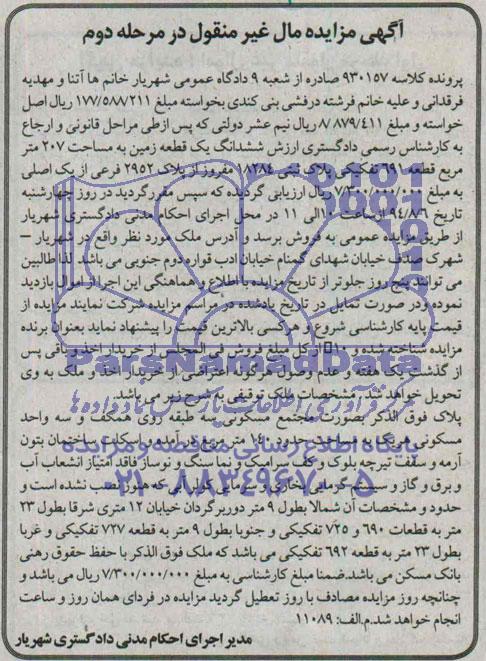 آگهی مزایده مال غیر منقول در مرحله دوم
پرونده کلاسه ۹۳۰۱۵۷ صادره از شعبه ۹ دادگاه عمومی شهریار خانم ها آتنا و مهدیه
فرقدانی و علیه خانم فرشته درفشی بنی کندی بخواسته مبلغ ۱۷۷/۵۸۸/۲۱۱ ریال اصل
خواسته و مبلغ ۸/۸۷۹/۴۱۱ ریال نیم عشر دولتی که پس ازطی مراحل قانونی و ارجاع
به کارشناس رسمی دادگستری ارزش ششدانگ یک قطعه زمین به مساحت ۲۰۷ متر
مربع قطعه ۶۹۱ تفکیکی پلاک ثبتی ۱۸۲۸۴ مفروز از پلاک ۲۹۵۲ فرعی از یک اصلی
به مبلغ ۷/۳۰۰/۰۰۰/۰۰۰ ریال ارزیابی گردیده که سپس مقرر گردید در روز چهارشنبه
تاریخ ۹۴/۸/۶ ازساعت ۱۰الی ۱۱ در محل اجرای احکام مدنی دادگستری شهریار
از طریق مزایده عمومی به فروش برسد و آدرس ملک مورد نظر واقع در شهریار –
شهرک صدف خیابان شهدای گمنام خیابان ادب قواره دوم جنوبی می باشد لذا طالبین
می توانند پنج روز جلوتر از تاریخ مزایده با اطلاع و هماهنگی این اجرا از اموال بازدید
نموده و در صورت تمایل در تاریخ یادشده در مراسم مزایده شرکت نمایند مزایده از
قیمت پایه کارشناسی شروع و هرکسی بالاترین قیمت را پیشنهاد نماید بعنوان برنده
مزایده شناخته شده و ۱۰٪ از کل مبلغ فروش فی المجلس از خریدار اخذ و باقی پس
از گذشت یک هفته و عدم وصول هرگونه اعتراضی از خریدار اخذ و ملک به وی
تحویل خواهد شد. مشخصات ملک توقیفی به شرح زیر می باشد.
پلاک فوق الذکر بصورت مجتمع مسکونی سه طبقه روی همکف و سه واحد
مسکونی هریک به مساحت حدود ۱۴۰ متر مربع در آمده و اسکلت ساختمان بتون
آرمه و سقف تیرچه بلوک و کف سرامیک و نما سنگ و نوساز فاقد امتیاز انشعاب آب
و برق و گاز و سیستم گرمایی بخاری و سرمایی کولر آبی که هنوز نصب نشده است و
حدود و مشخصات آن شمالا بطول ۹ متر دوربرگردان خیابان ۱۲ متری شرقا بطول ۲۳
متر به قطعات ۶۹۰ و ۷۲۵ تفکیکی و جنوبا بطول ۹ متر به قطعه ۷۲۷ تفکیکی و غربا
بطول ۲۳ متر به قطعه ۶۹۲ تفکیکی می باشد که ملک فوق الذکر با حفظ حقوق رهنی
بانک مسکن می باشد.ضمنا مبلغ کارشناسی به مبلغ ۷/۳۰۰/۰۰۰/۰۰۰ ریال می باشد و
چنانچه روز مزایده مصادف با روز تعطیل گردید مزایده در فردای همان روز و ساعت
انجام خواهد شد.م.الف: ۱۱۰۸۹
مدیر اجرای احکام مدنی دادگستری شهریار
ParsNamadData
پایگاه اطلاع رسانی مناقصه و مزایده
۰۲۱-۸۸۳۴۹۶۷۰-۵